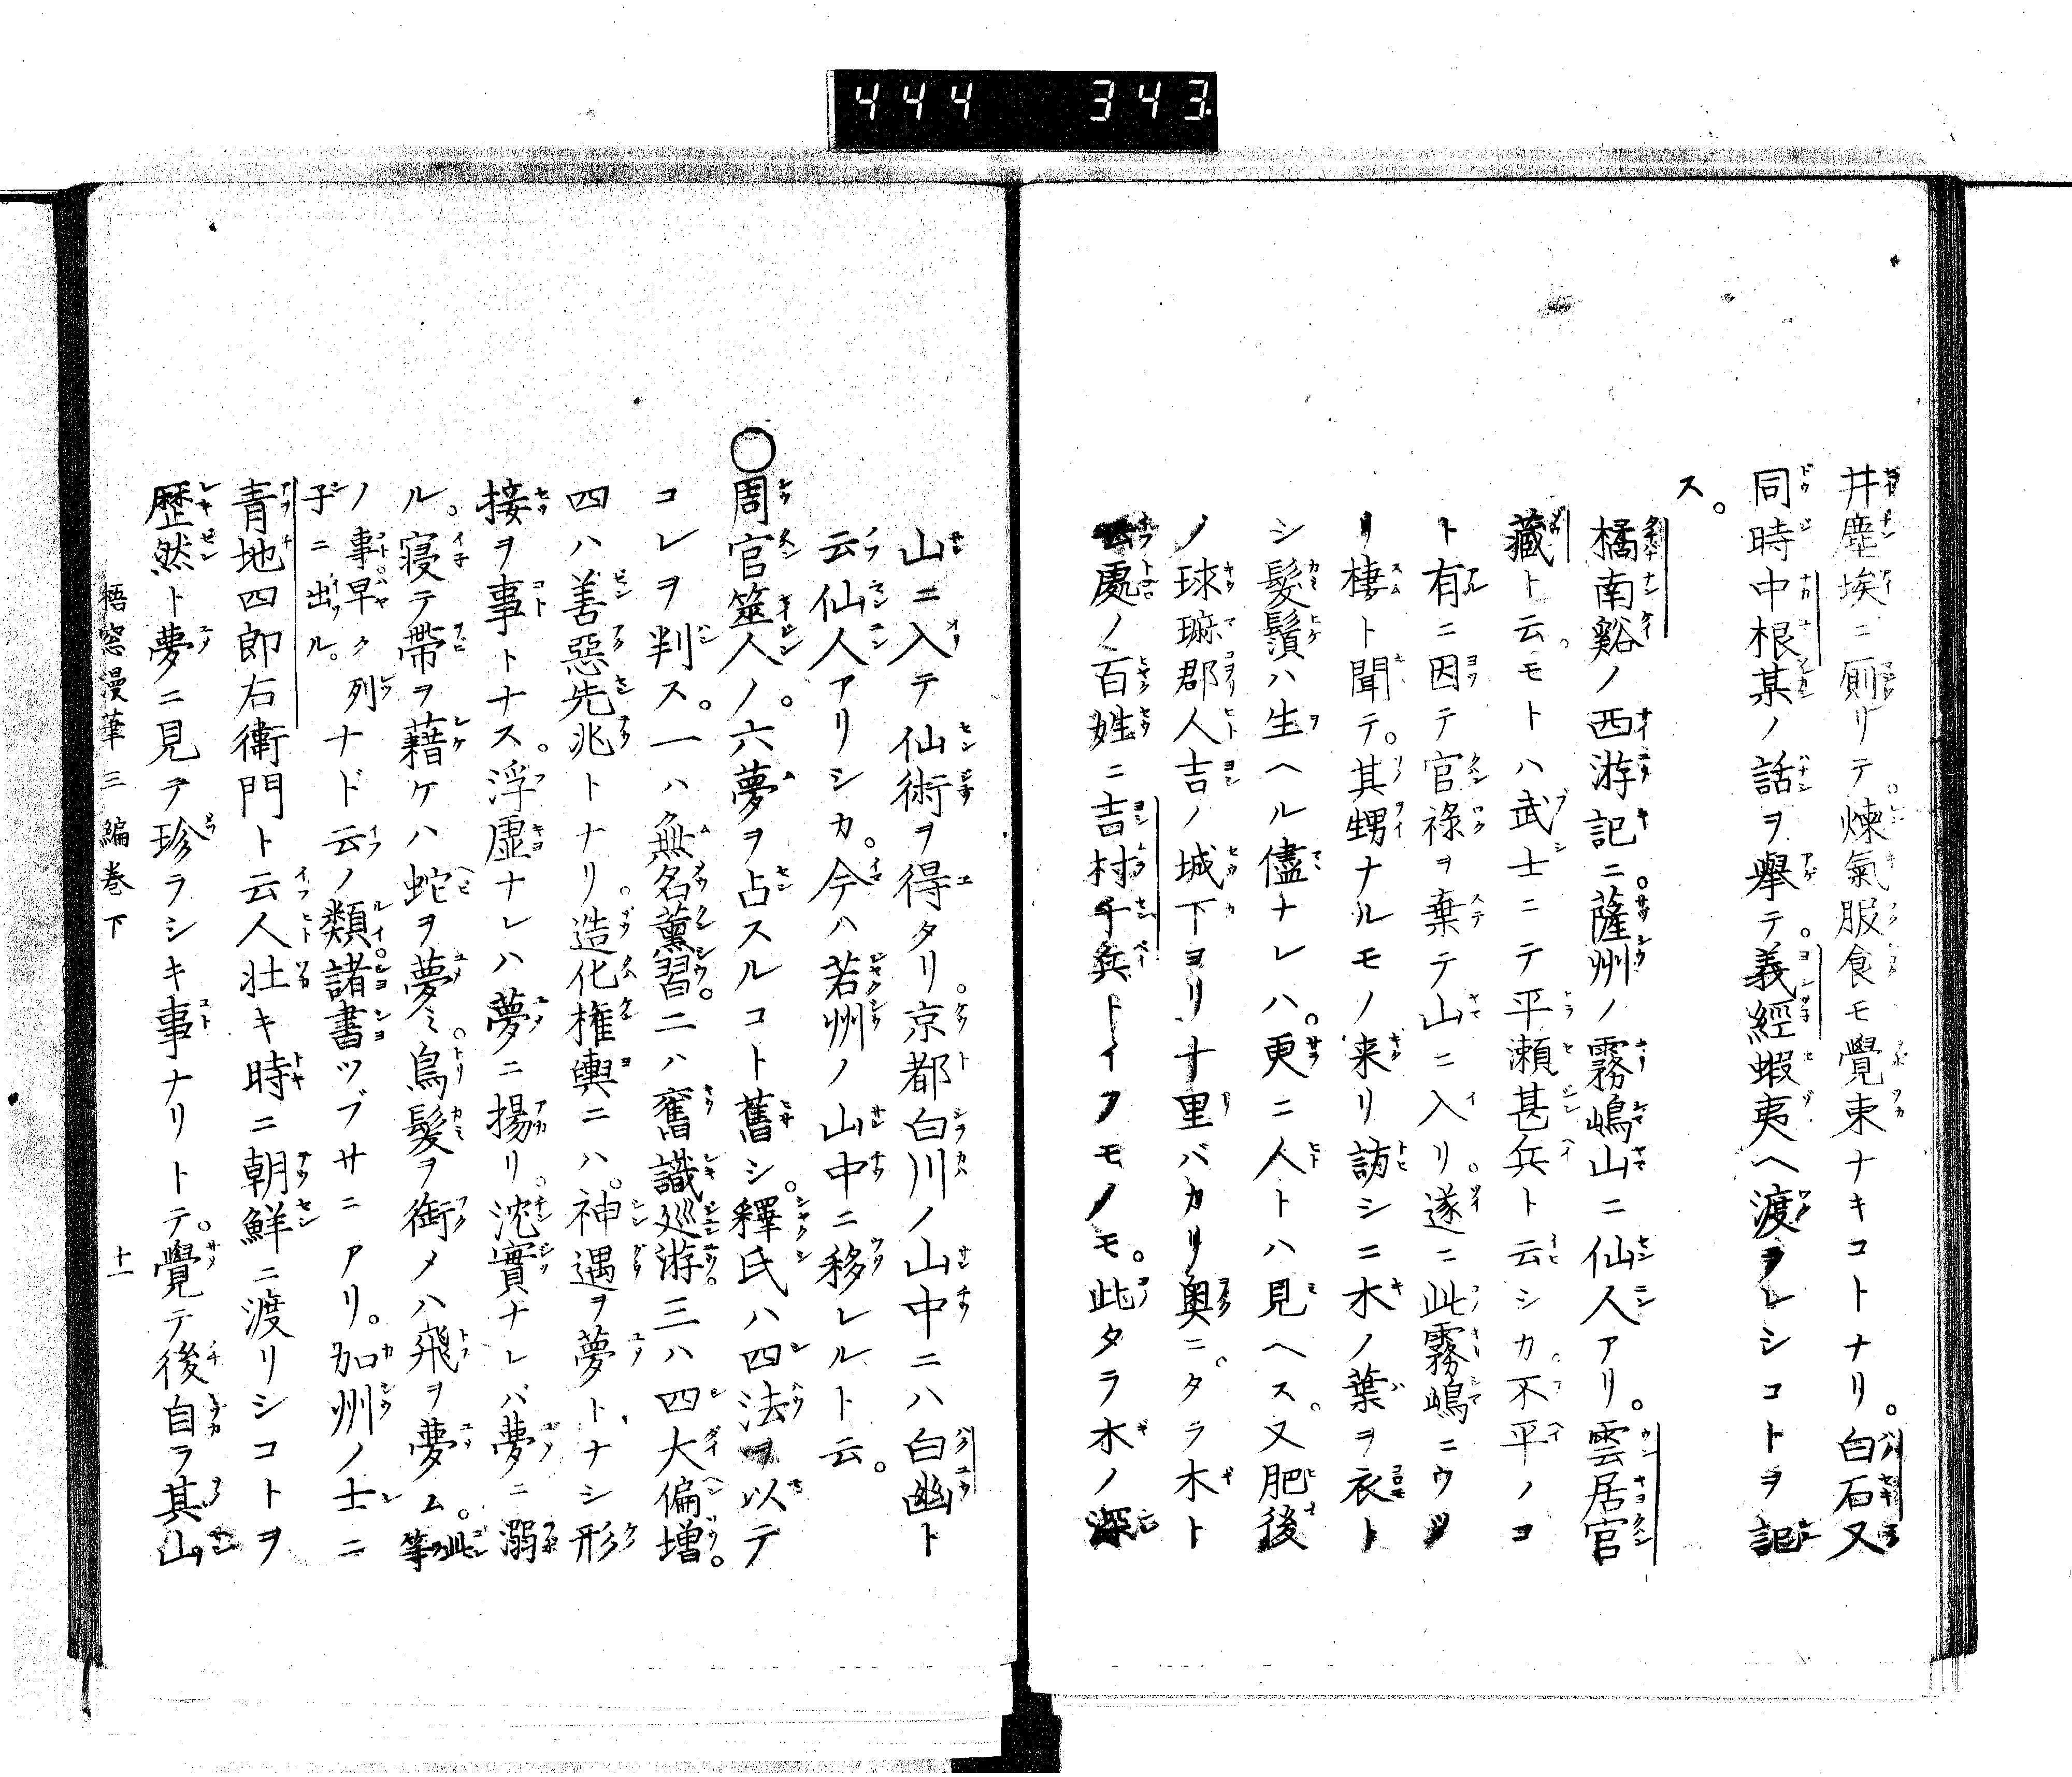 444 343.
井塵埃ニ厠リテ煉氣服食モ覺束ナキコトナリ。白石又
同時中根某ノ話ヲ擧テ。義經蝦夷ヘ渡ラレシコトヲ記
ス。
橘南谿ノ西游記ニ。薩州ノ霧嶋山ニ仙人アリ。雲居官
藏ト云。モトハ武士ニテ平瀬甚兵ト云シカ。不平ノコ
ト有ニ因テ官祿ヲ棄テ山ニ入リ。遂ニ此霧嶋ニウツ
リ棲ト聞テ。其甥ナルモノ来リ訪シニ木ノ葉ヲ衣ト
シ髮鬚ハ生ヘル儘ナレハ。更ニ人トハ見ヘス。又肥後
ノ球麻郡人吉ノ城下ヨリ十里バカリ奥ニ。タラ木ト
云處ノ百姓ニ吉村千兵トイフモノモ。此タラ木ノ深
山ニ入テ仙術ヲ得タリ。京都白川ノ山中ニハ白幽ト
云仙人アリシカ。今ハ若州ノ山中ニ移レルト云。
○周官筮人ノ。六夢ヲ占スルコト舊シ。釋氏ハ四法ヲ以テ
コレヲ判ス。一ハ無名薫習。二ハ舊識巡游。三ハ四大偏增。
四ハ善惡先兆トナリ。造化權輿ニハ。神遇ヲ夢トナシ形
接ヲ事トナス。浮虛ナレハ夢ニ揚リ。沈實ナレバ夢ニ溺
ル。寢テ帶ヲ藉ケハ蛇ヲ夢ミ。鳥髮ヲ銜メハ飛ヲ夢ム。此等
ノ事早ク列子ニ出ル。ナド云ノ類諸書ツブサニアリ。加州ノ士ニ
青地四郎右衛門ト云人壮キ時ニ朝鮮ニ渡リシコトヲ
歴然ト夢ニ見テ珍ラシキ事ナリトテ。覺テ後自ラ其山
梧窓漫筆 三編巻下 十一